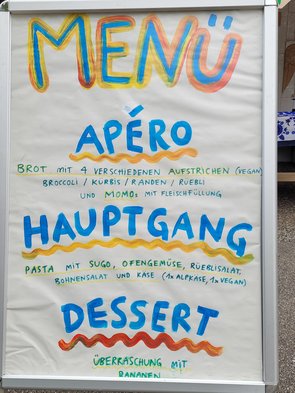 MENÜ
APÉRO
BROT MIT 4 VERSCHIEDENEN AUFSTRICHEN (VEGAN)
BROCCOLI / KÜRBIS / RANDEN / RÜEBLI
UND MOMOS MIT FLEISCHFÜLLUNG
HAUPTGANG
PASTA MIT SUGO, OFENGEMÜSE, RÜEBLISALAT,
BOHNENSALAT UND KÄSE (1x ALPKÄSE, 1x VEGAN)
DESSERT
ÜBERRASCHUNG MIT
BANANEN